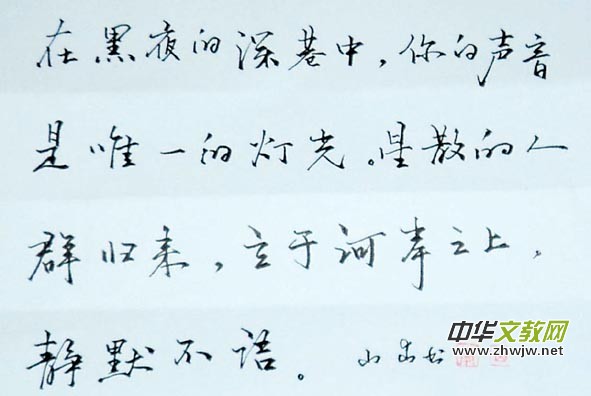 在黑夜的深巷中，你的声音
是唯一的灯光。星散的人
群归来，立于河岸之上，
静默不语。
中华文教网
www.zhwjw.net